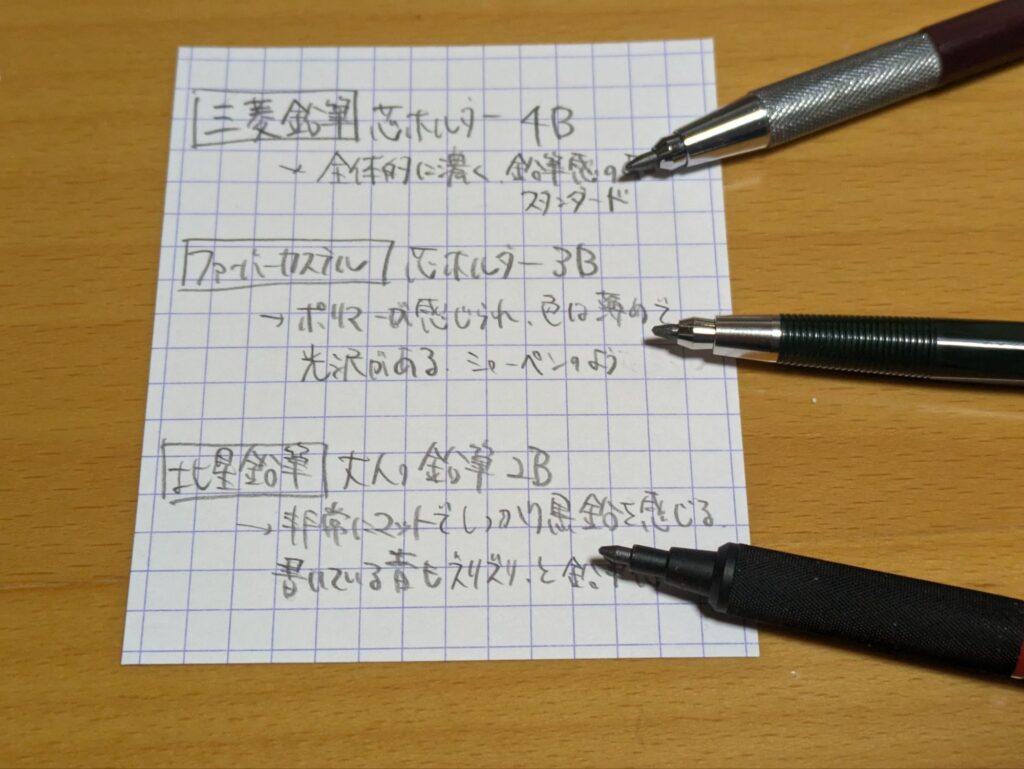 三菱鉛筆 芯ホルダー 4B
→ 全体的に濃く、鉛筆感の
スタンダード
ファーバーカステル 芯ホルダー 3B
→ ポリマーが感じられ、色は薄めで
光沢がある。シャーペンのよう
北星鉛筆 大人の鉛筆 2B
→ 非常にマットでしっかり黒鉛を感じる。
書いている音もえりえり、と鉛筆